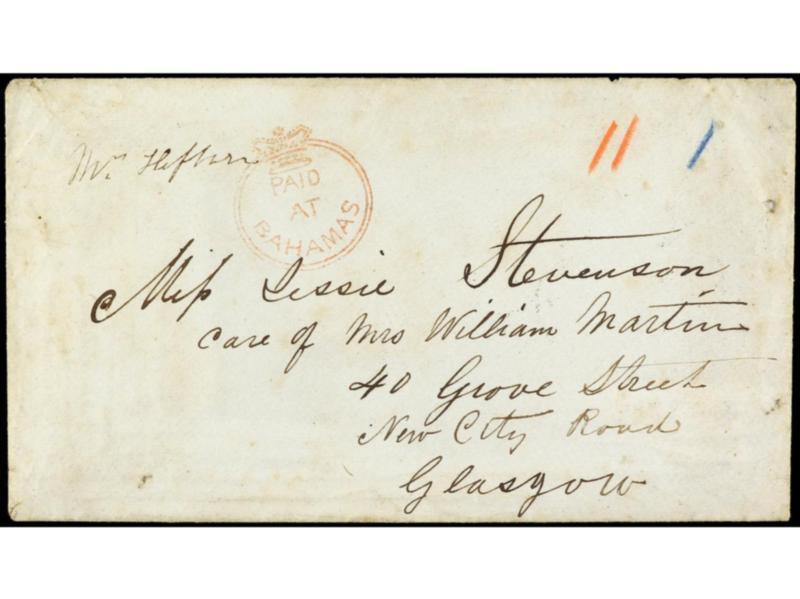 11 1
Mr
PAID
AT
BAHAMAS
Miss Jessie Stevenson
care of Mrs William Martin
40 Grove Street
New City Road
Glasgow